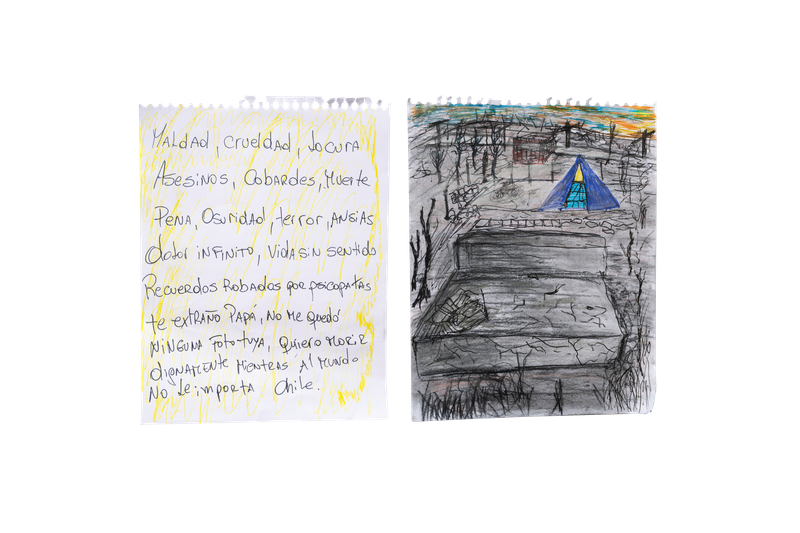 Maldad, crueldad, locura
Asesinos, Cobardes, Muerte
Pena, Osuridad, terror, ansias
dolor infinito, vida sin sentido
Recuerdos Robados por psicopatas
te extraño Papá, no me quedó
ninguna foto tuya, quiero morir
dignamente mientras al mundo
no le importa Chile.